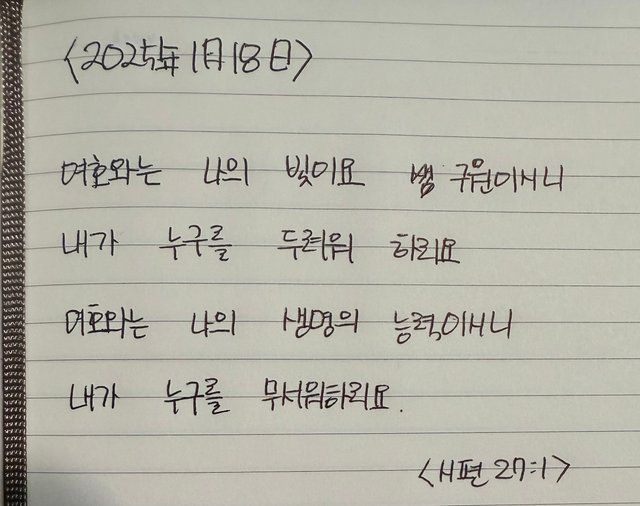 <2025年 1月 18日>
여호와는 나의 빛이요 구원이시니
내가 누구를 두려워 하리요
여호와는 나의 생명의 능력이시니
내가 누구를 무서워하리요.
<시편 27:1>